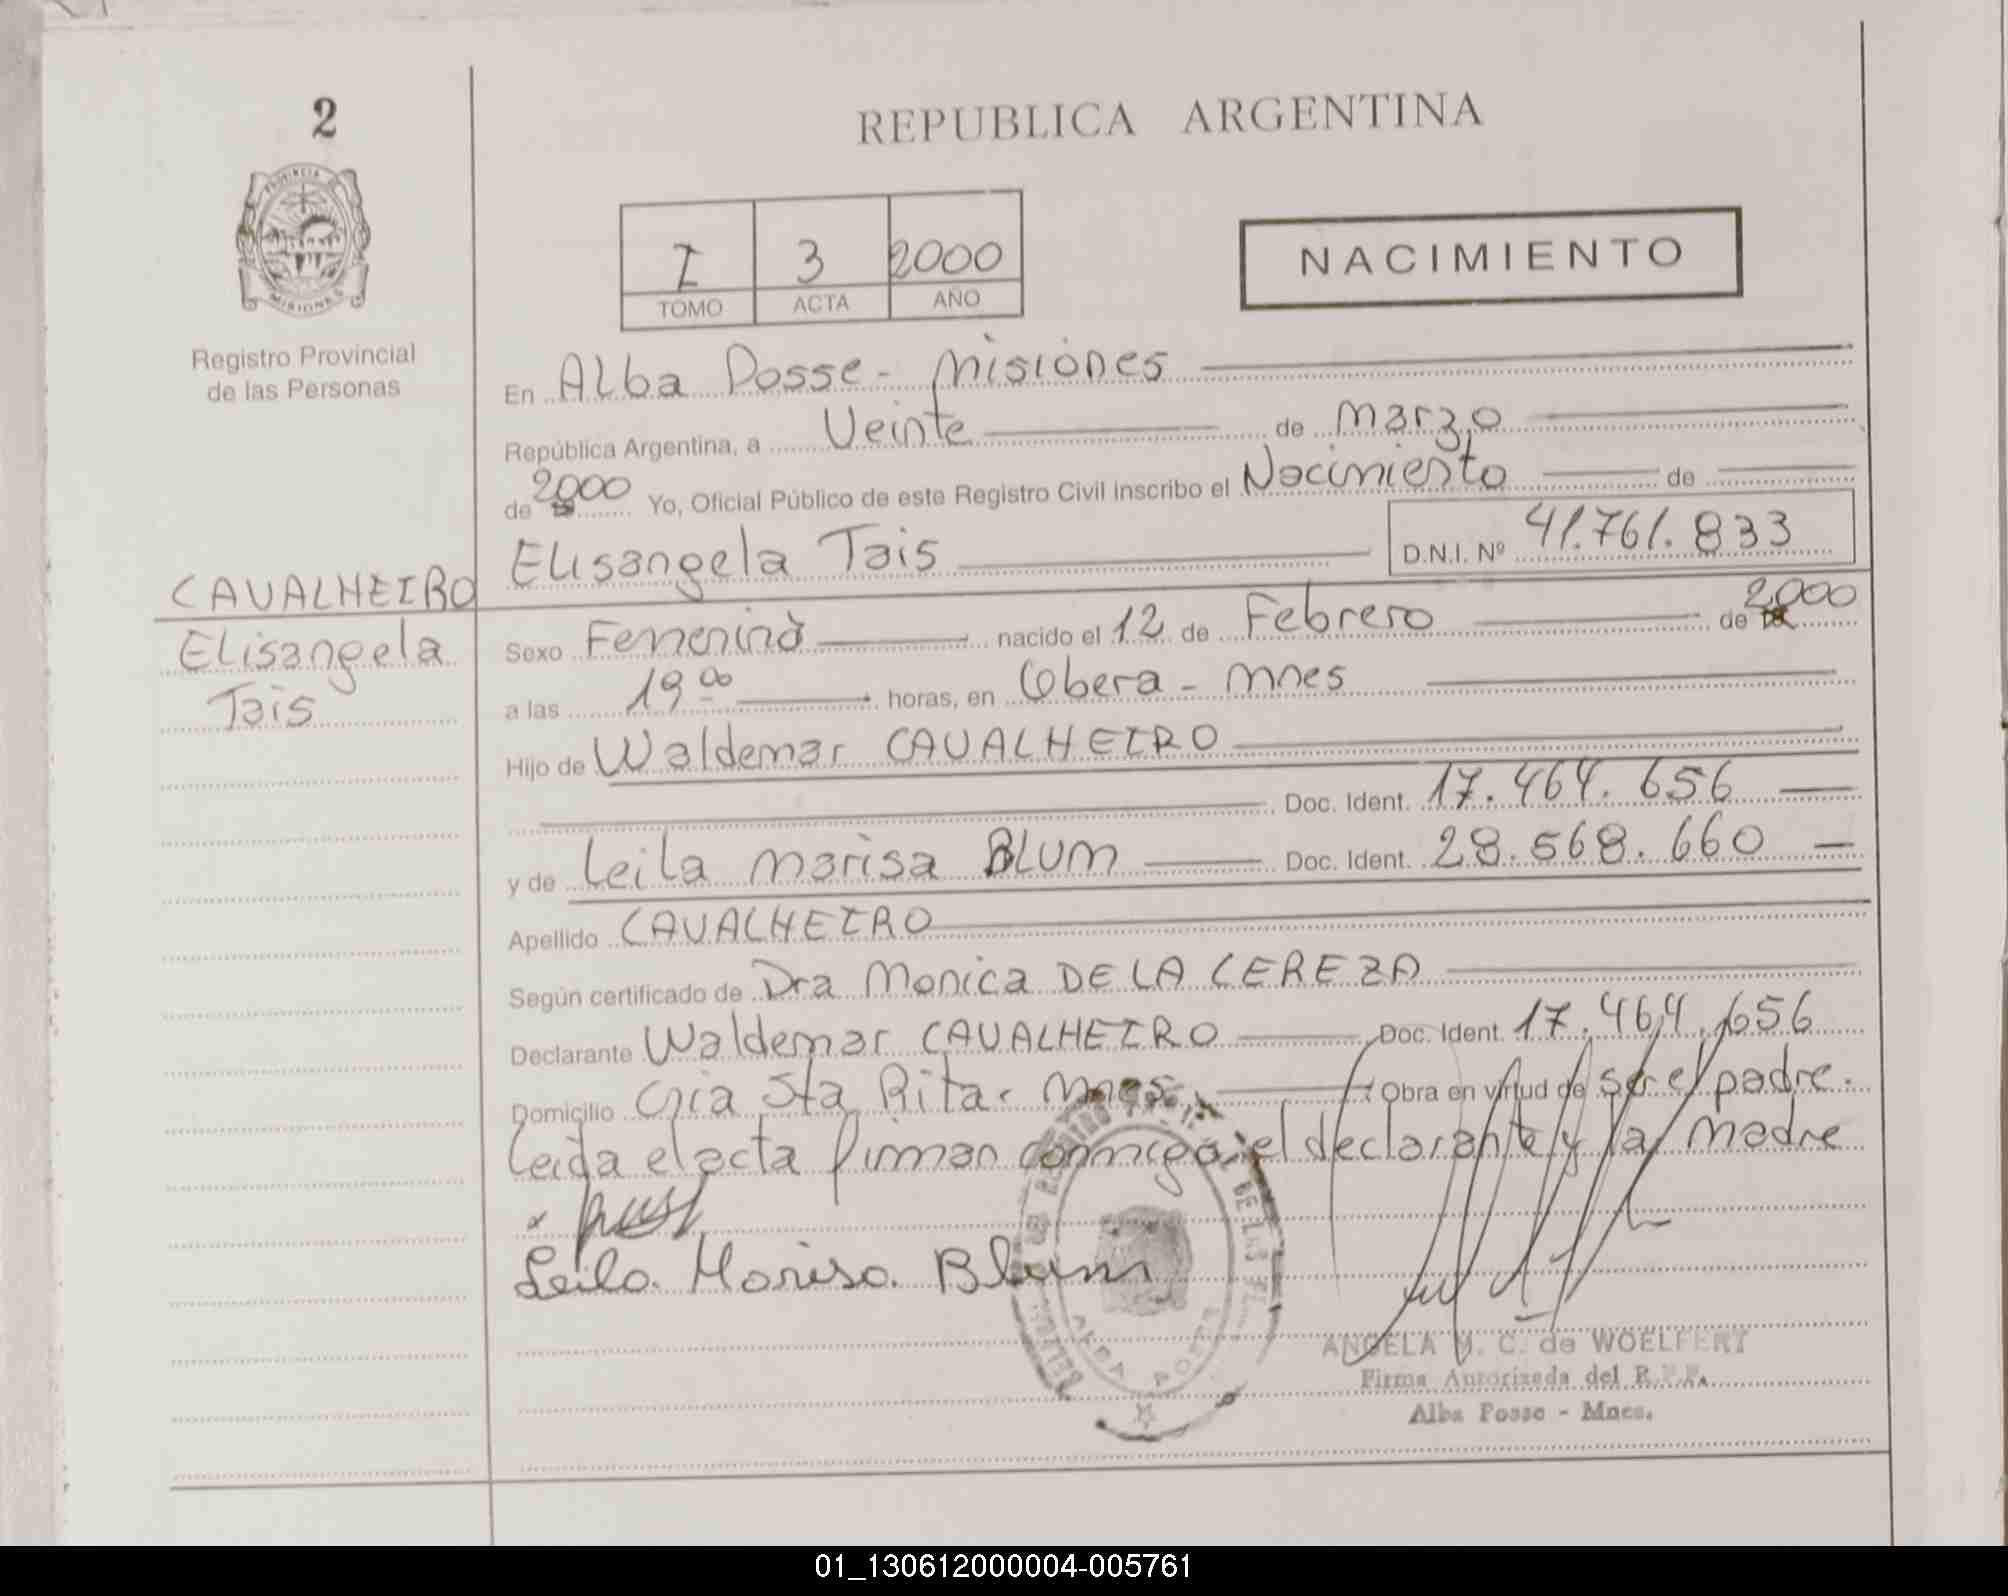 2
REPUBLICA ARGENTINA
PROVINCIA
MISIONES
Registro Provincial
de las Personas
I 3 2000
TOMO ACTA AÑO
NACIMIENTO
En Alba Posse - Misiones
República Argentina, a Veinte de Marzo
de 2000 Yo, Oficial Público de este Registro Civil inscribo el Nacimiento de
Elisangela Tais D.N.I. Nº 41.761.833
CAVALHEIRO
Elisangela
Tais
Sexo Femenino nacido el 12 de Febrero de 2000
a las 19 00 horas, en Obera - Mnes
Hijo de Waldemar CAVALHEIRO
Doc. Ident. 17.464.656
y de Leila Marisa BLUM Doc. Ident. 28.568.660
Apellido CAVALHEIRO
Según certificado de Dra Monica DE LA CEREZA
Declarante Waldemar CAVALHEIRO Doc. Ident. 17.464.656
Domicilio Cnia Sta Rita - Mnes. Obra en virtud de ser el padre.
Leida el acta firman conmigo el declarante y la madre
x
Leila Marisa Blum
ALBA POSSE
ANGELA M. C. de WOELFERT
Firma Autorizada del R.P.P.
Alba Posse - Mnes.
01_130612000004-005761